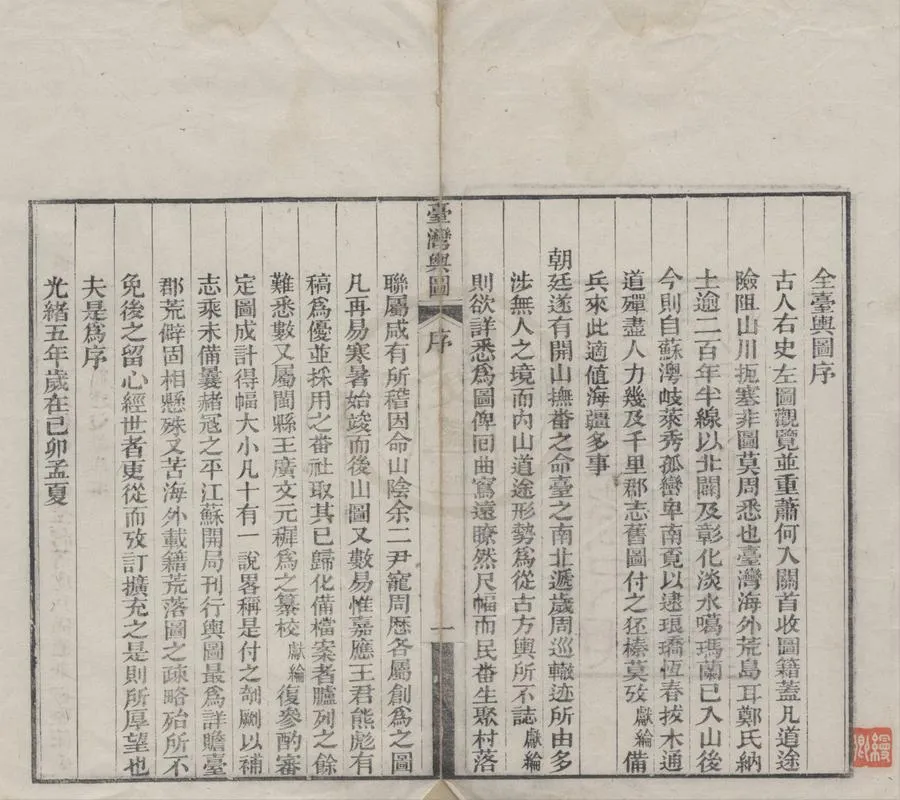 全臺輿圖序
古人右史左圖觀覽並重蕭何入關首收圖籍蓋凡道途
險阻山川扼塞非圖莫周悉也臺灣海外荒島耳鄭氏納
土逾二百年半線以北闢及彰化淡水噶瑪蘭已入山後
今則自蘇澳岐萊秀孤巒卑南覓以逮琅𤩝恆春拔木通
道殫盡人力幾及千里郡志舊圖付之狉榛莫攷獻綸備
兵來此適值海疆多事
朝廷遂有開山撫番之命臺之南北遞歲周巡轍迹所由多
涉無人之境而內山道途形勢為從古方輿所不誌獻綸
則欲詳悉為圖俾囘曲寫遠瞭然尺幅而民番生聚村落
臺灣輿圖
序
一
聯屬咸有所稽因命山陰余二尹寵周歷各屬創為之圖
凡再易寒暑始竣而後山圖又數易惟嘉應王君熊彪有
稿為優並採用之番社取其已歸化備檔案者臚列之餘
難悉數又屬閩縣王廣文元穉為之纂校獻綸復參酌審
定圖成計得幅大小凡十有一說畧稱是付之剞劂以補
志乘未備曩赭寇之平江蘇開局刊行輿圖最為詳贍臺
郡荒僻固相懸殊又苦海外載籍荒落圖之疎略殆所不
免後之留心經世者更從而攷訂擴充之是則所厚望也
夫是為序
光緒五年歲在己卯孟夏